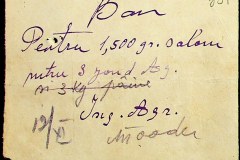 Bon
Pentru 1,500 gr. salam
ntru 3 jond Ag.
n 3 kg pâine
Ing. Agr.
12/XI